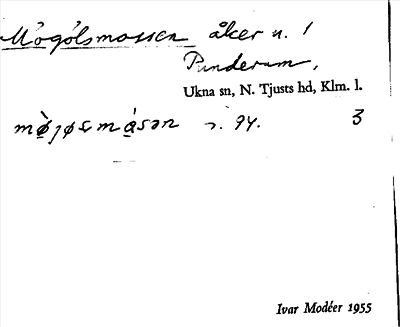 Mögölsmossen åker n. 1
Punderum,
Ukna sn, N. Tjusts hd, Klm. l.
3
Ivar Modéer 1955